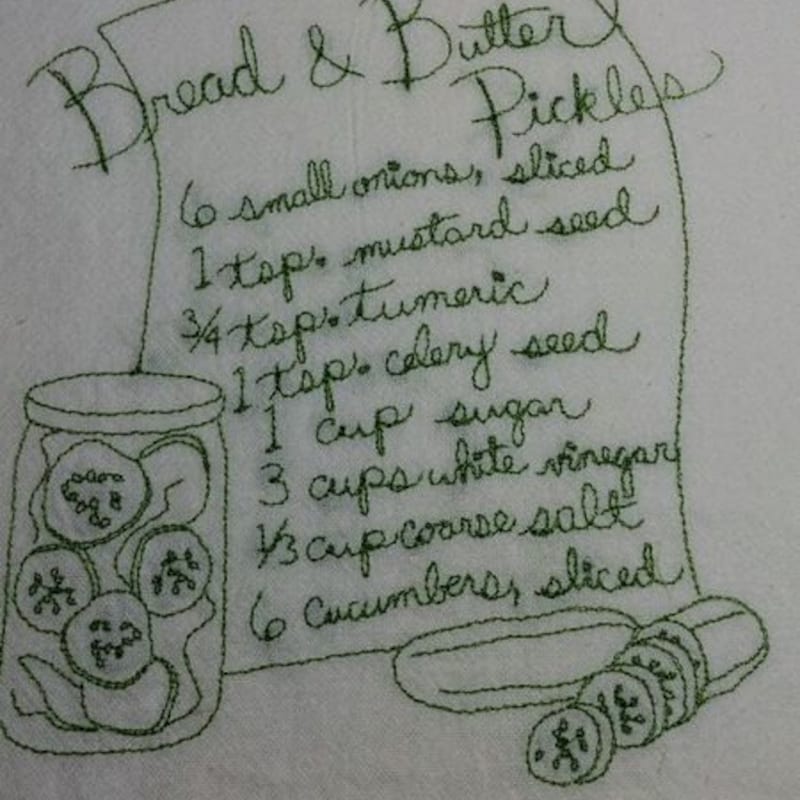 Bread & Butter
Pickles
6 small onions, sliced
1 tsp. mustard seed
3/4 tsp. tumeric
1 tsp. celery seed
1 cup sugar
3 cups white vinegar
1/3 cup coarse salt
6 cucumbers, sliced